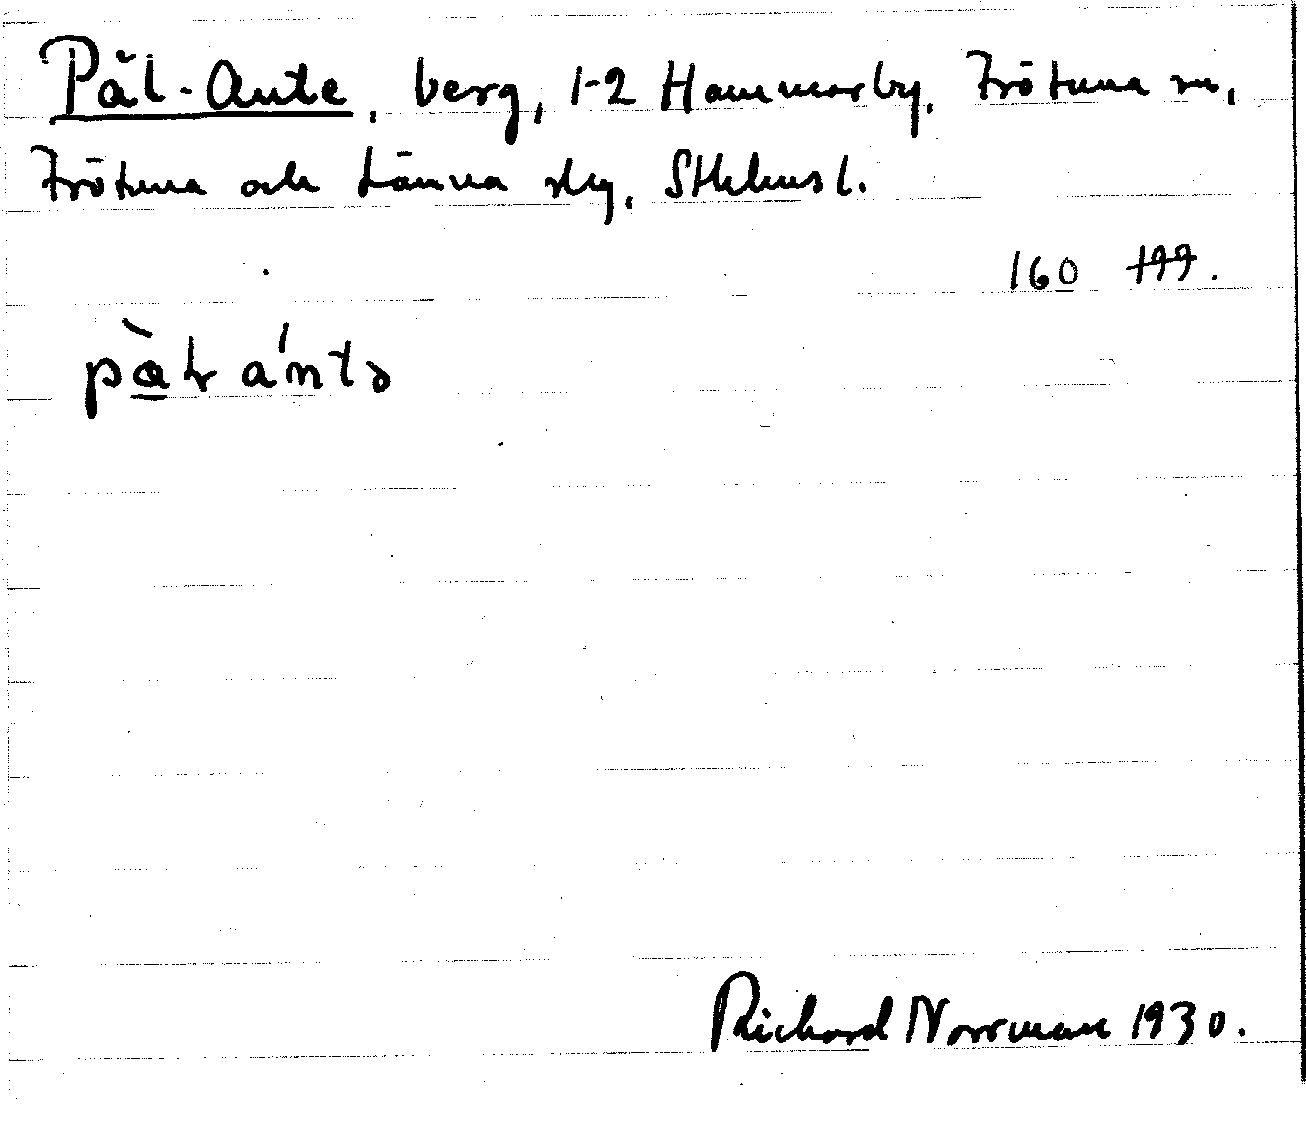 Päl-Ante, berg, 1-2 Hammarby, Frötuna sn,
Frötuna och Länna skg, Sthlms l.
160 199.
Richard Norrman 1930.